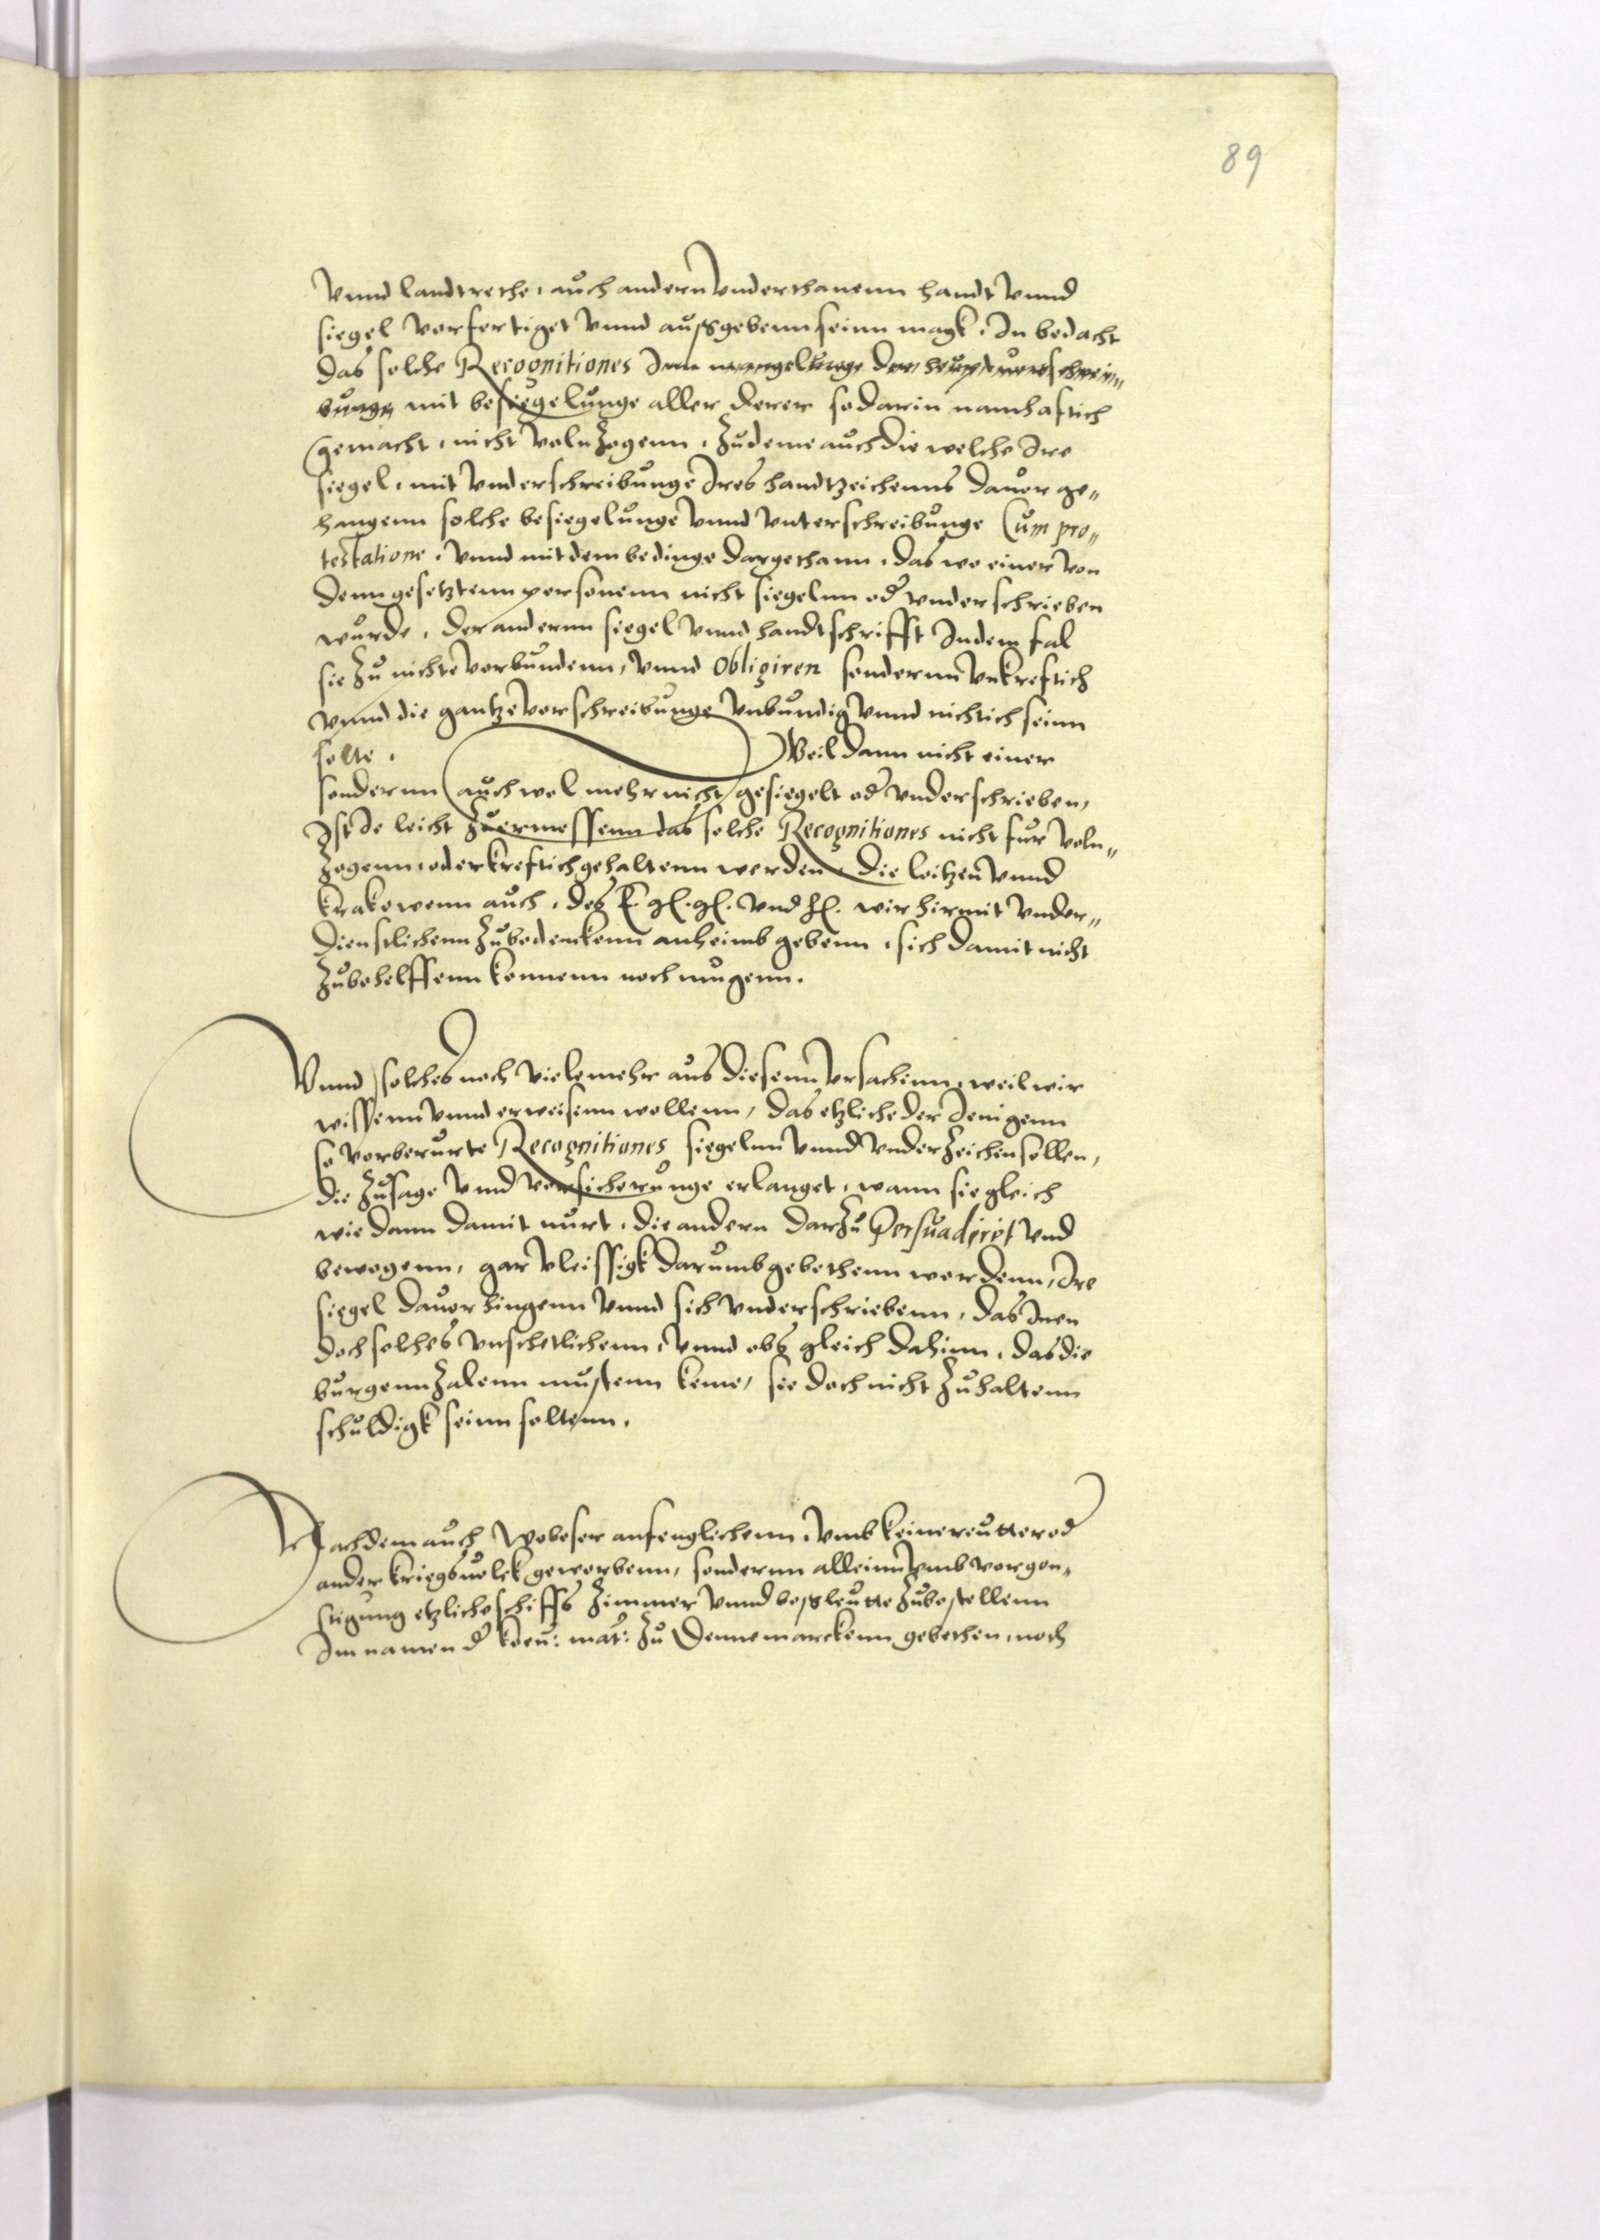 89
Vnnd landtrethe, auch andern Vnderthanenn handt Vnnd
siegel Verfertiget Vnnd außgebenn seinn magk, In bedacht
das solche Recognitiones Inn mangelunge der heuptverschrei„
bunge mit besiegelunge aller derer so darin namhafftich
gemacht, nicht Volnzogenn, Zudeme auch die welche Ire
siegel, mit Vnderschreibunge Ires handtzeichenns dauor ge„
hangenn solche besiegelunge Vnnd Vnterschreibunge Cum pro„
testatione, Vnnd mit dem bedinge dargethann, das wo einer von
denn gesetztenn personenn nicht siegelnn oder Vnderschrieben
wurde, der andernn siegel Vnnd handtschrifft In dem fal
sie Zu nichte Verbundenn, Vnnd Obligiren sondernn Vnkreftich
Vnnd die gantze Verschreibunge Vnbundig Vnnd nichtich seinn
solte. Weil dann nicht einer
sondernn auch wol mehr nicht gesiegelt oder Vnderschrieben,
Ist Je leicht Zuermessenn das solche Recognitiones nicht fur Voln„
Zogenn oder kreftich gehaltenn werden, die loitzen Vnnd
krakowenn auch, des E. gl. gl. vnd hl. wir hirmit Vnder„
dienstlichenn Zubedenckenn anheimb gebenn, sich damit nicht
Zubehelffenn konnenn noch mugenn.
Vnnd solches noch Vielemehr aus diesenn Vrsachenn, weil wir
wissenn Vnnd erweisenn wollenn, das etzliche der Jenigenn
so Vorberurte Recognitiones siegelnn Vnnd Vnderzeichen sollen,
die Zusage Vnd Versicherunge erlanget, wann sie gleich
wie dann damit nurt, die andern darzu Persuadiret Vnd
bewogenn, gar Vleissigk darumb gebethenn wordenn, Ire
siegel dauor hingenn Vnnd sich Vnderschriebenn, das Inen
doch solches Vnschetlichenn, Vnnd obs gleich dahinn, das die
burgenn Zalenn mustenn keme, sie doch nicht Zuhaltenn
schuldigk seinn soltenn.
Nachdem auch Wobeser anfenglichenn, Vmb keine reutter oder
ander kriegsuolck geworbenn, sondernn allein Vmb vorgon„
stigung etzliche schiffs Zimmer Vnnd boßleutte Zubestellenn
Im namen der koen: mat: Zu Dennemarckenn gebethen, noch